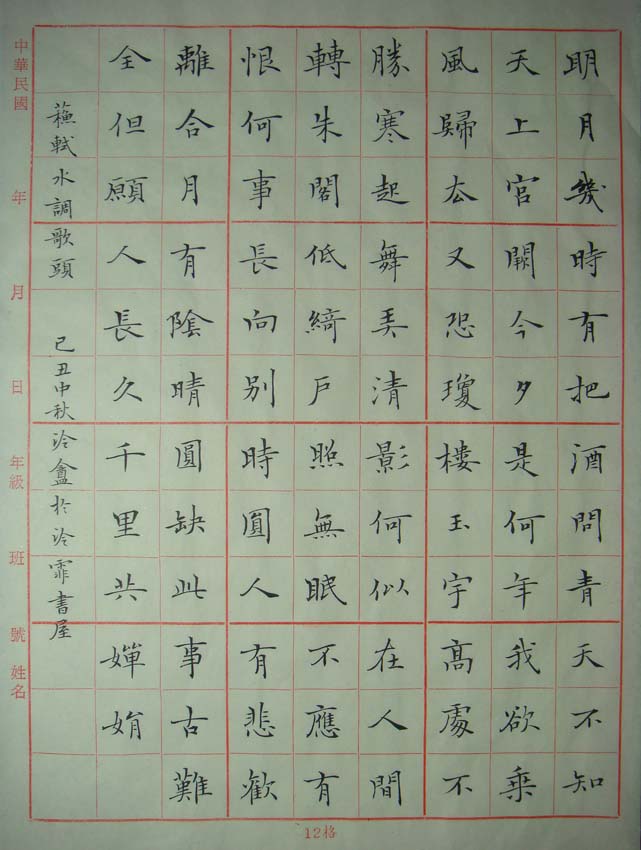 明月幾時有把酒問青天不知
天上宮闕今夕是何年我欲乘
風歸去又恐瓊樓玉宇高處不
勝寒起舞弄清影何似在人間
轉朱閣低綺戶照無眠不應有
恨何事長向別時圓人有悲歡
離合月有陰晴圓缺此事古難
全但願人長久千里共嬋娟
蘓軾水調歌頭 己丑中秋泠盦於泠霏書屋
中華民國 年 月 日 年級 班 號 姓名
12格